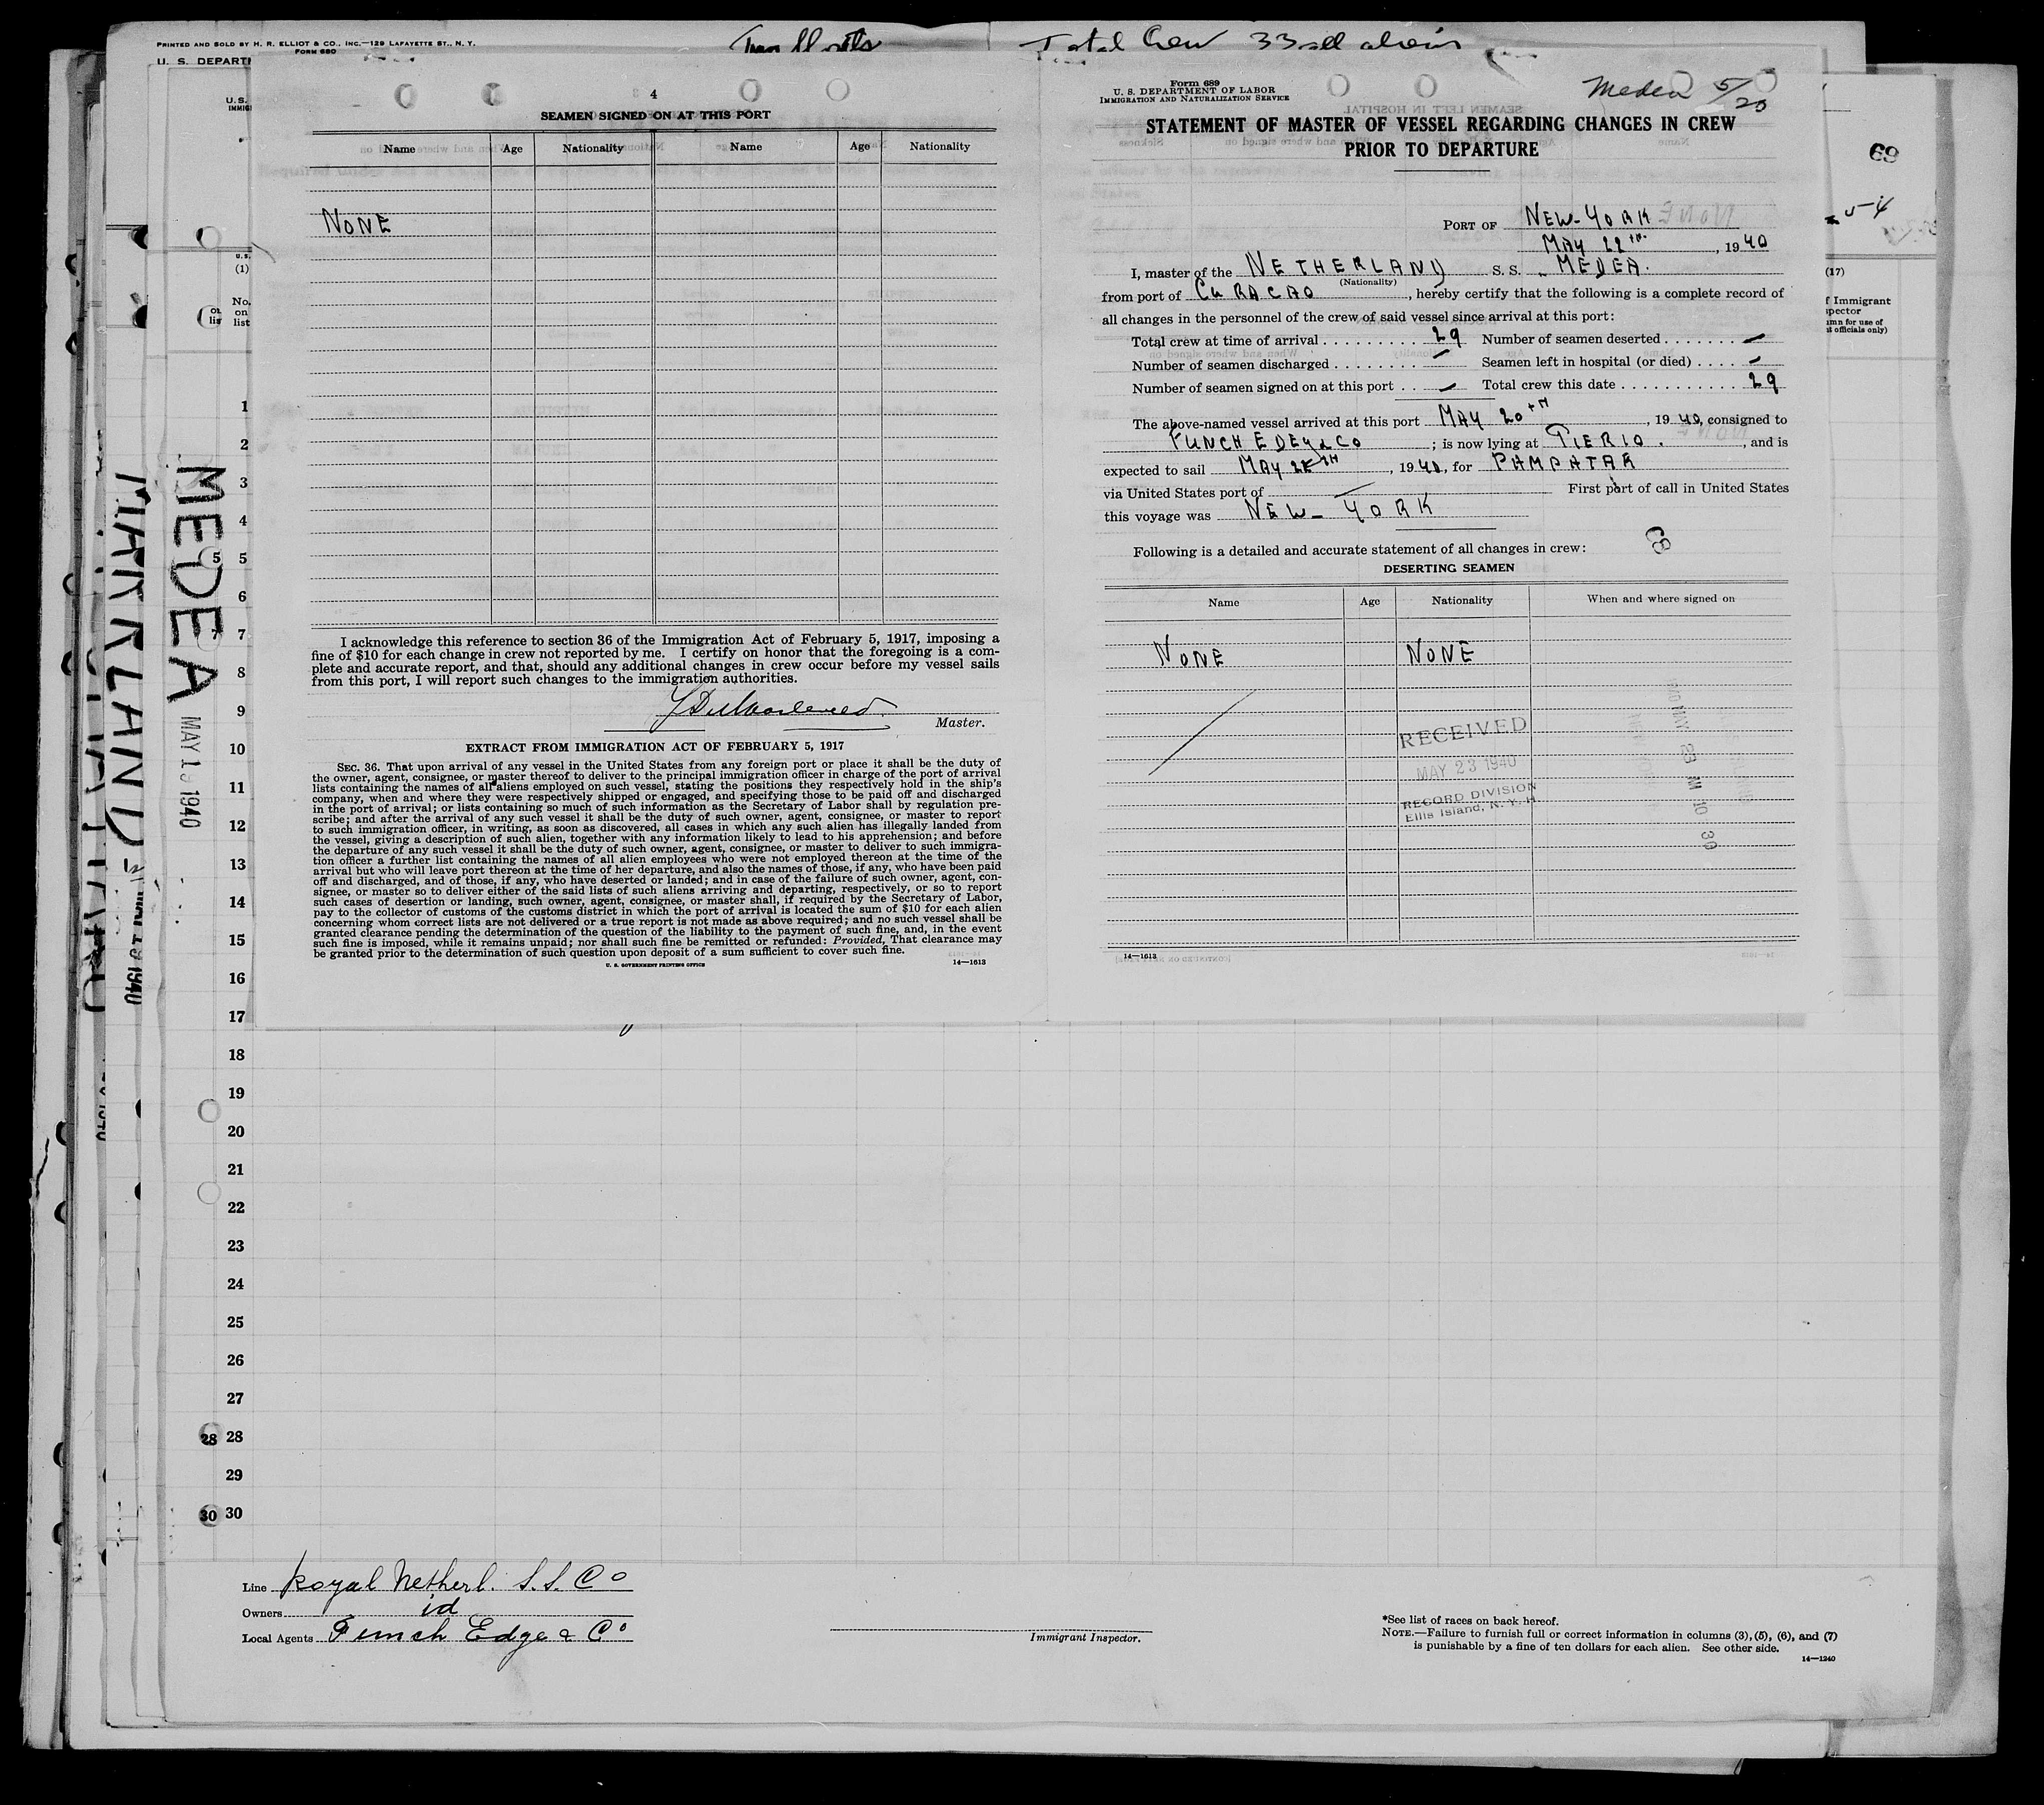 PRINTED AND SOLD BY H. R. ELLIOT & CO., INC.—129 LAFAYETTE ST., N. Y.
FORM 680
U. S. DEPART
Total Crew 33 all aliens
U.S.
IMMIG
U.S.
(1)
No.
on
list
4
SEAMEN SIGNED ON AT THIS PORT
Name Age Nationality Name Age Nationality
NONE
I acknowledge this reference to section 36 of the Immigration Act of February 5, 1917, imposing a
fine of $10 for each change in crew not reported by me. I certify on honor that the foregoing is a com-
plete and accurate report, and that, should any additional changes in crew occur before my vessel sails
from this port, I will report such changes to the immigration authorities.
Master.
EXTRACT FROM IMMIGRATION ACT OF FEBRUARY 5, 1917
SEC. 36. That upon arrival of any vessel in the United States from any foreign port or place it shall be the duty of
the owner, agent, consignee, or master thereof to deliver to the principal immigration officer in charge of the port of arrival
lists containing the names of all aliens employed on such vessel, stating the positions they respectively hold in the ship's
company, when and where they were respectively shipped or engaged, and specifying those to be paid off and discharged
in the port of arrival; or lists containing so much of such information as the Secretary of Labor shall by regulation pre-
scribe; and after the arrival of any such vessel it shall be the duty of such owner, agent, consignee, or master to report
to such immigration officer, in writing, as soon as discovered, all cases in which any such alien has illegally landed from
the vessel, giving a description of such alien, together with any information likely to lead to his apprehension; and before
the departure of any such vessel it shall be the duty of such owner, agent, consignee, or master to deliver to such immigra-
tion officer a further list containing the names of all alien employees who were not employed thereon at the time of the
arrival but who will leave port thereon at the time of her departure, and also the names of those, if any, who have been paid
off and discharged, and of those, if any, who have deserted or landed; and in case of the failure of such owner, agent, con-
signee, or master so to deliver either of the said lists of such aliens arriving and departing, respectively, or so to report
such cases of desertion or landing, such owner, agent, consignee, or master shall, if required by the Secretary of Labor,
pay to the collector of customs of the customs district in which the port of arrival is located the sum of $10 for each alien
concerning whom correct lists are not delivered or a true report is not made as above required; and no such vessel shall be
granted clearance pending the determination of the question of the liability to the payment of such fine, and, in the event
such fine is imposed, while it remains unpaid; nor shall such fine be remitted or refunded: Provided, That clearance may
be granted prior to the determination of such question upon deposit of a sum sufficient to cover such fine.
U. S. GOVERNMENT PRINTING OFFICE 14—1613
Form 689
U. S. DEPARTMENT OF LABOR
IMMIGRATION AND NATURALIZATION SERVICE
Medea 5/20
STATEMENT OF MASTER OF VESSEL REGARDING CHANGES IN CREW
PRIOR TO DEPARTURE
PORT OF NEW-YORK
MAY 22TH, 1940
I, master of the NETHERLAND S. S. „ MEDEA.
(Nationality)
from port of CURACAO, hereby certify that the following is a complete record of
all changes in the personnel of the crew of said vessel since arrival at this port:
Total crew at time of arrival 29 Number of seamen deserted —
Number of seamen discharged — Seamen left in hospital (or died) —
Number of seamen signed on at this port — Total crew this date 29
The above-named vessel arrived at this port MAY 20TH, 1940, consigned to
FUNCH EDEY & CO; is now lying at PIER 10., and is
expected to sail MAY TH, 1940, for PAMPATAR
via United States port of — First port of call in United States
this voyage was NEW-YORK
Following is a detailed and accurate statement of all changes in crew:
69
DESERTING SEAMEN
Name Age Nationality When and where signed on
NONE NONE
RECEIVED
MAY 23 1940
RECORD DIVISION
Ellis Island, N. Y. H
1940 MAY 23 AM 10 39
14—1613
69
5-4
(17)
f Immigrant
spector
umn for use of
t officials only)
MEDEA
MAY 19 1940
MAARLAND
1940
1
2
3
4
5 5
6
7 7
8
9
10
11
12
13
14
15
16
17
18
19
20
21
22
23
24
25
26
27
28 28
29
30 30
Line Royal Netherl. S.S. Co
Owners id
Local Agents Funch Edge & Co
Immigrant Inspector.
*See list of races on back hereof.
NOTE.—Failure to furnish full or correct information in columns (3), (5), (6), and (7)
is punishable by a fine of ten dollars for each alien. See other side.
14—1240